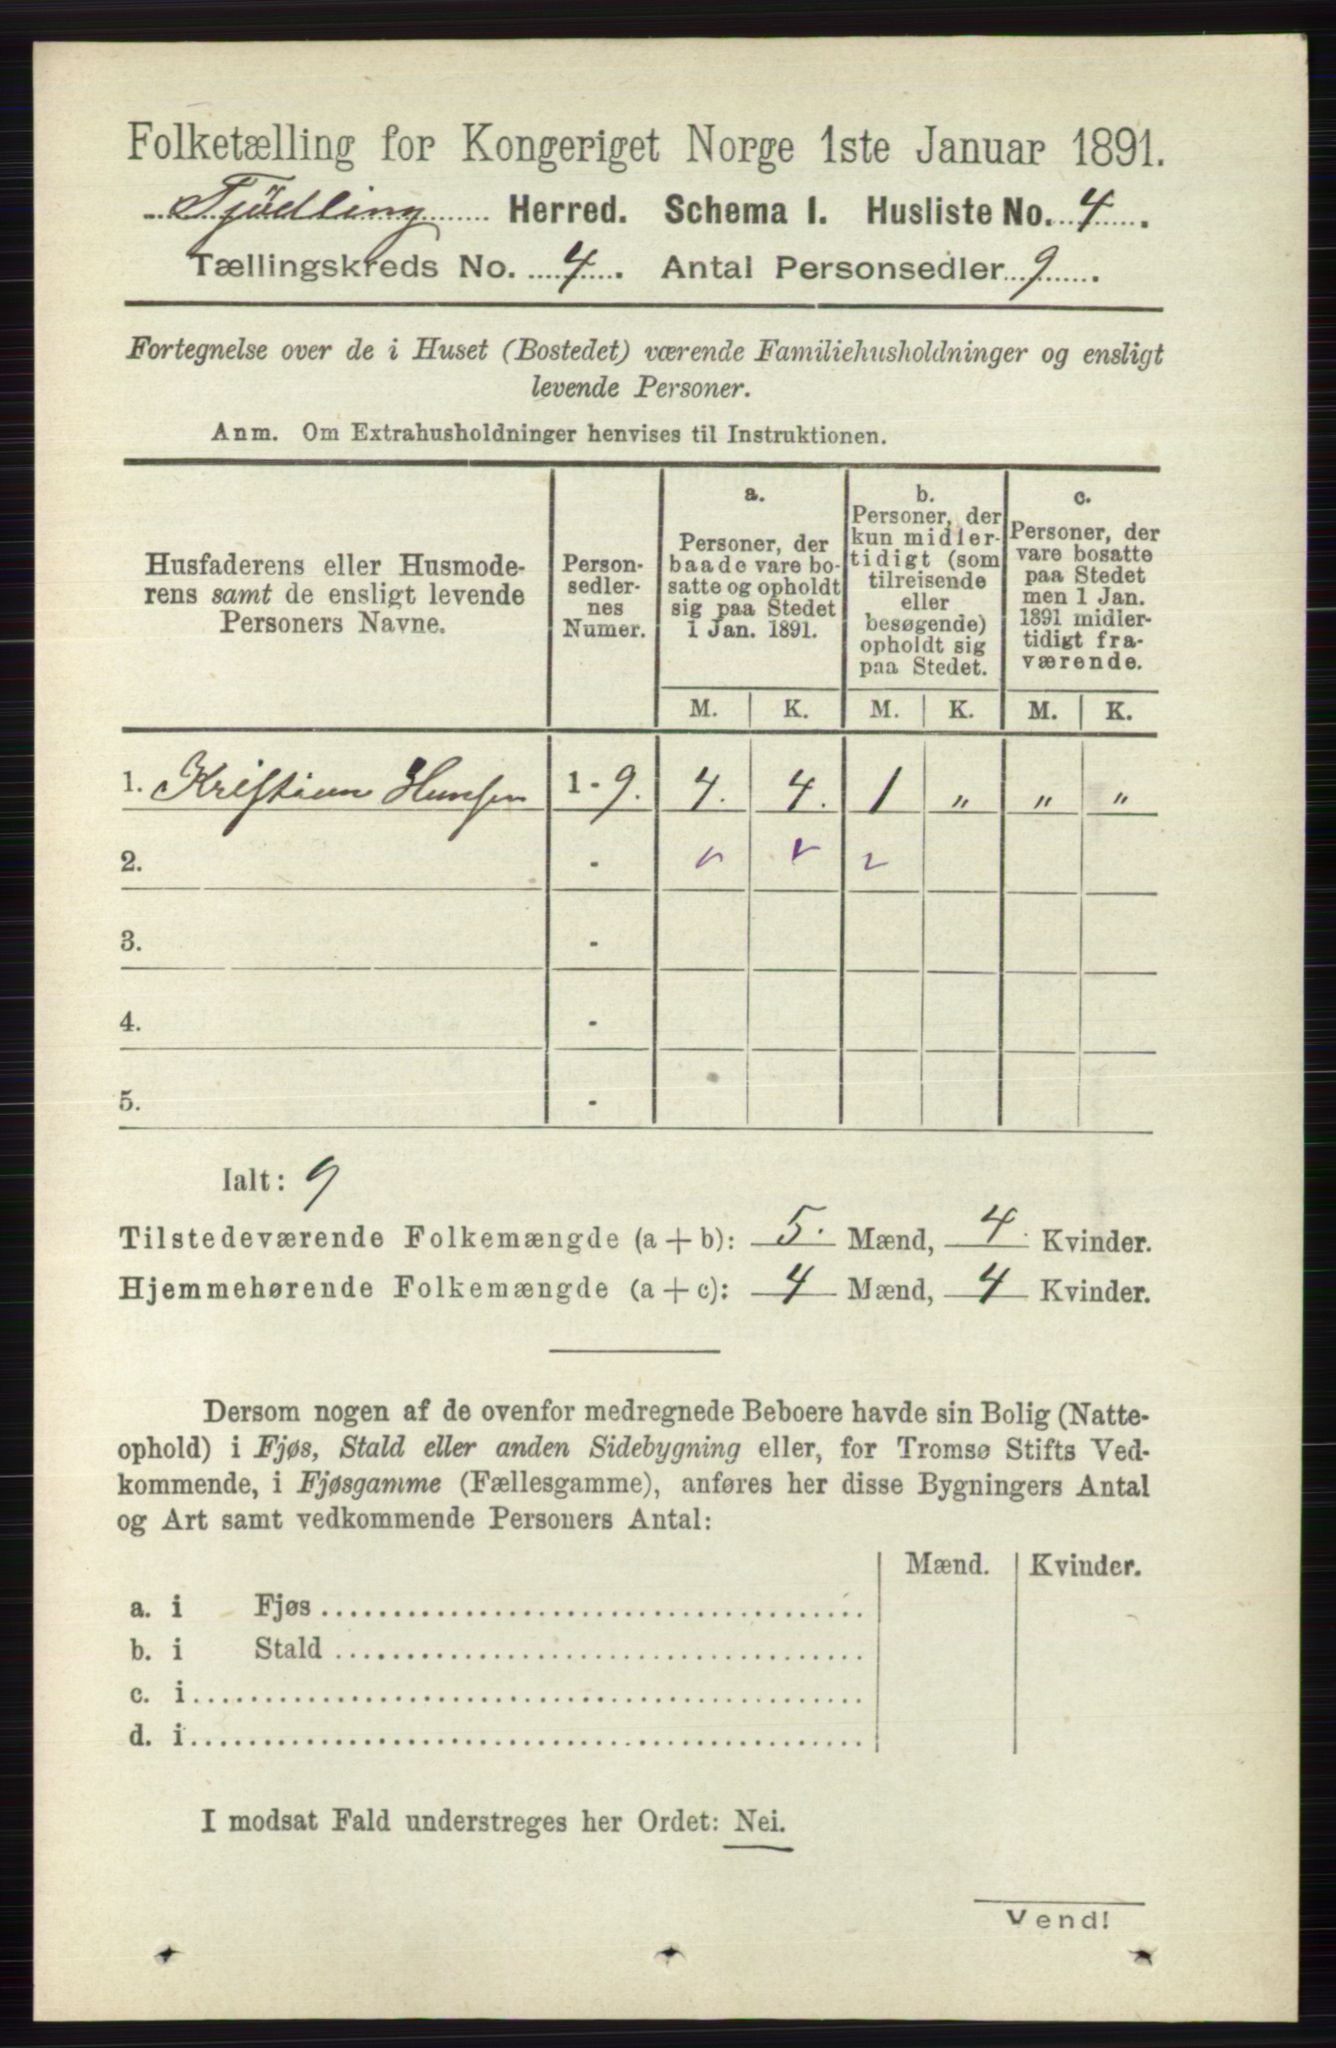 Folketælling for Kongeriget Norge 1ste Januar 1891.
Tjödling Herred. Schema I. Husliste No. 4.
Tællingskreds No. 4. Antal Personsedler 9.
Fortegnelse over de i Huset (Bostedet) værende Familiehusholdninger og ensligt
levende Personer.
Anm. Om Extrahusholdninger henvises til Instruktionen.
Husfaderens eller Husmode-
rens samt de ensligt levende
Personers Navne.
Person-
sedler-
nes
Numer.
a.
Personer, der
baade vare bo-
satte og opholdt
sig paa Stedet
1 Jan. 1891.
b.
Personer, der
kun midler-
tidigt (som
tilreisende
eller
besøgende)
opholdt sig
paa Stedet.
c.
Personer, der
vare bosatte
paa Stedet
men 1 Jan.
1891 midler-
tidigt fra-
værende.
M. K. M. K. M. K.
1. Kristian Hansen 1 - 9. 4. 4. 1 " " "
2. -
3. -
4. -
5. -
Ialt: 9
Tilstedeværende Folkemængde (a + b): 5. Mænd, 4. Kvinder.
Hjemmehørende Folkemængde (a + c): 4 Mænd, 4 Kvinder.
Dersom nogen af de ovenfor medregnede Beboere havde sin Bolig (Natte-
ophold) i Fjøs, Stald eller anden Sidebygning eller, for Tromsø Stifts Ved-
kommende, i Fjøsgamme (Fællesgamme), anføres her disse Bygningers Antal
og Art samt vedkommende Personers Antal:
Mænd. Kvinder.
a. i Fjøs
b. i Stald
c. i
d. i
I modsat Fald understreges her Ordet: Nei.
Vend!